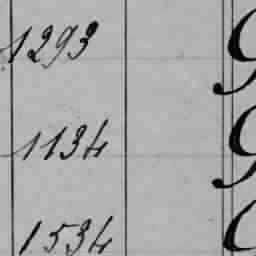 1293
1134
1534